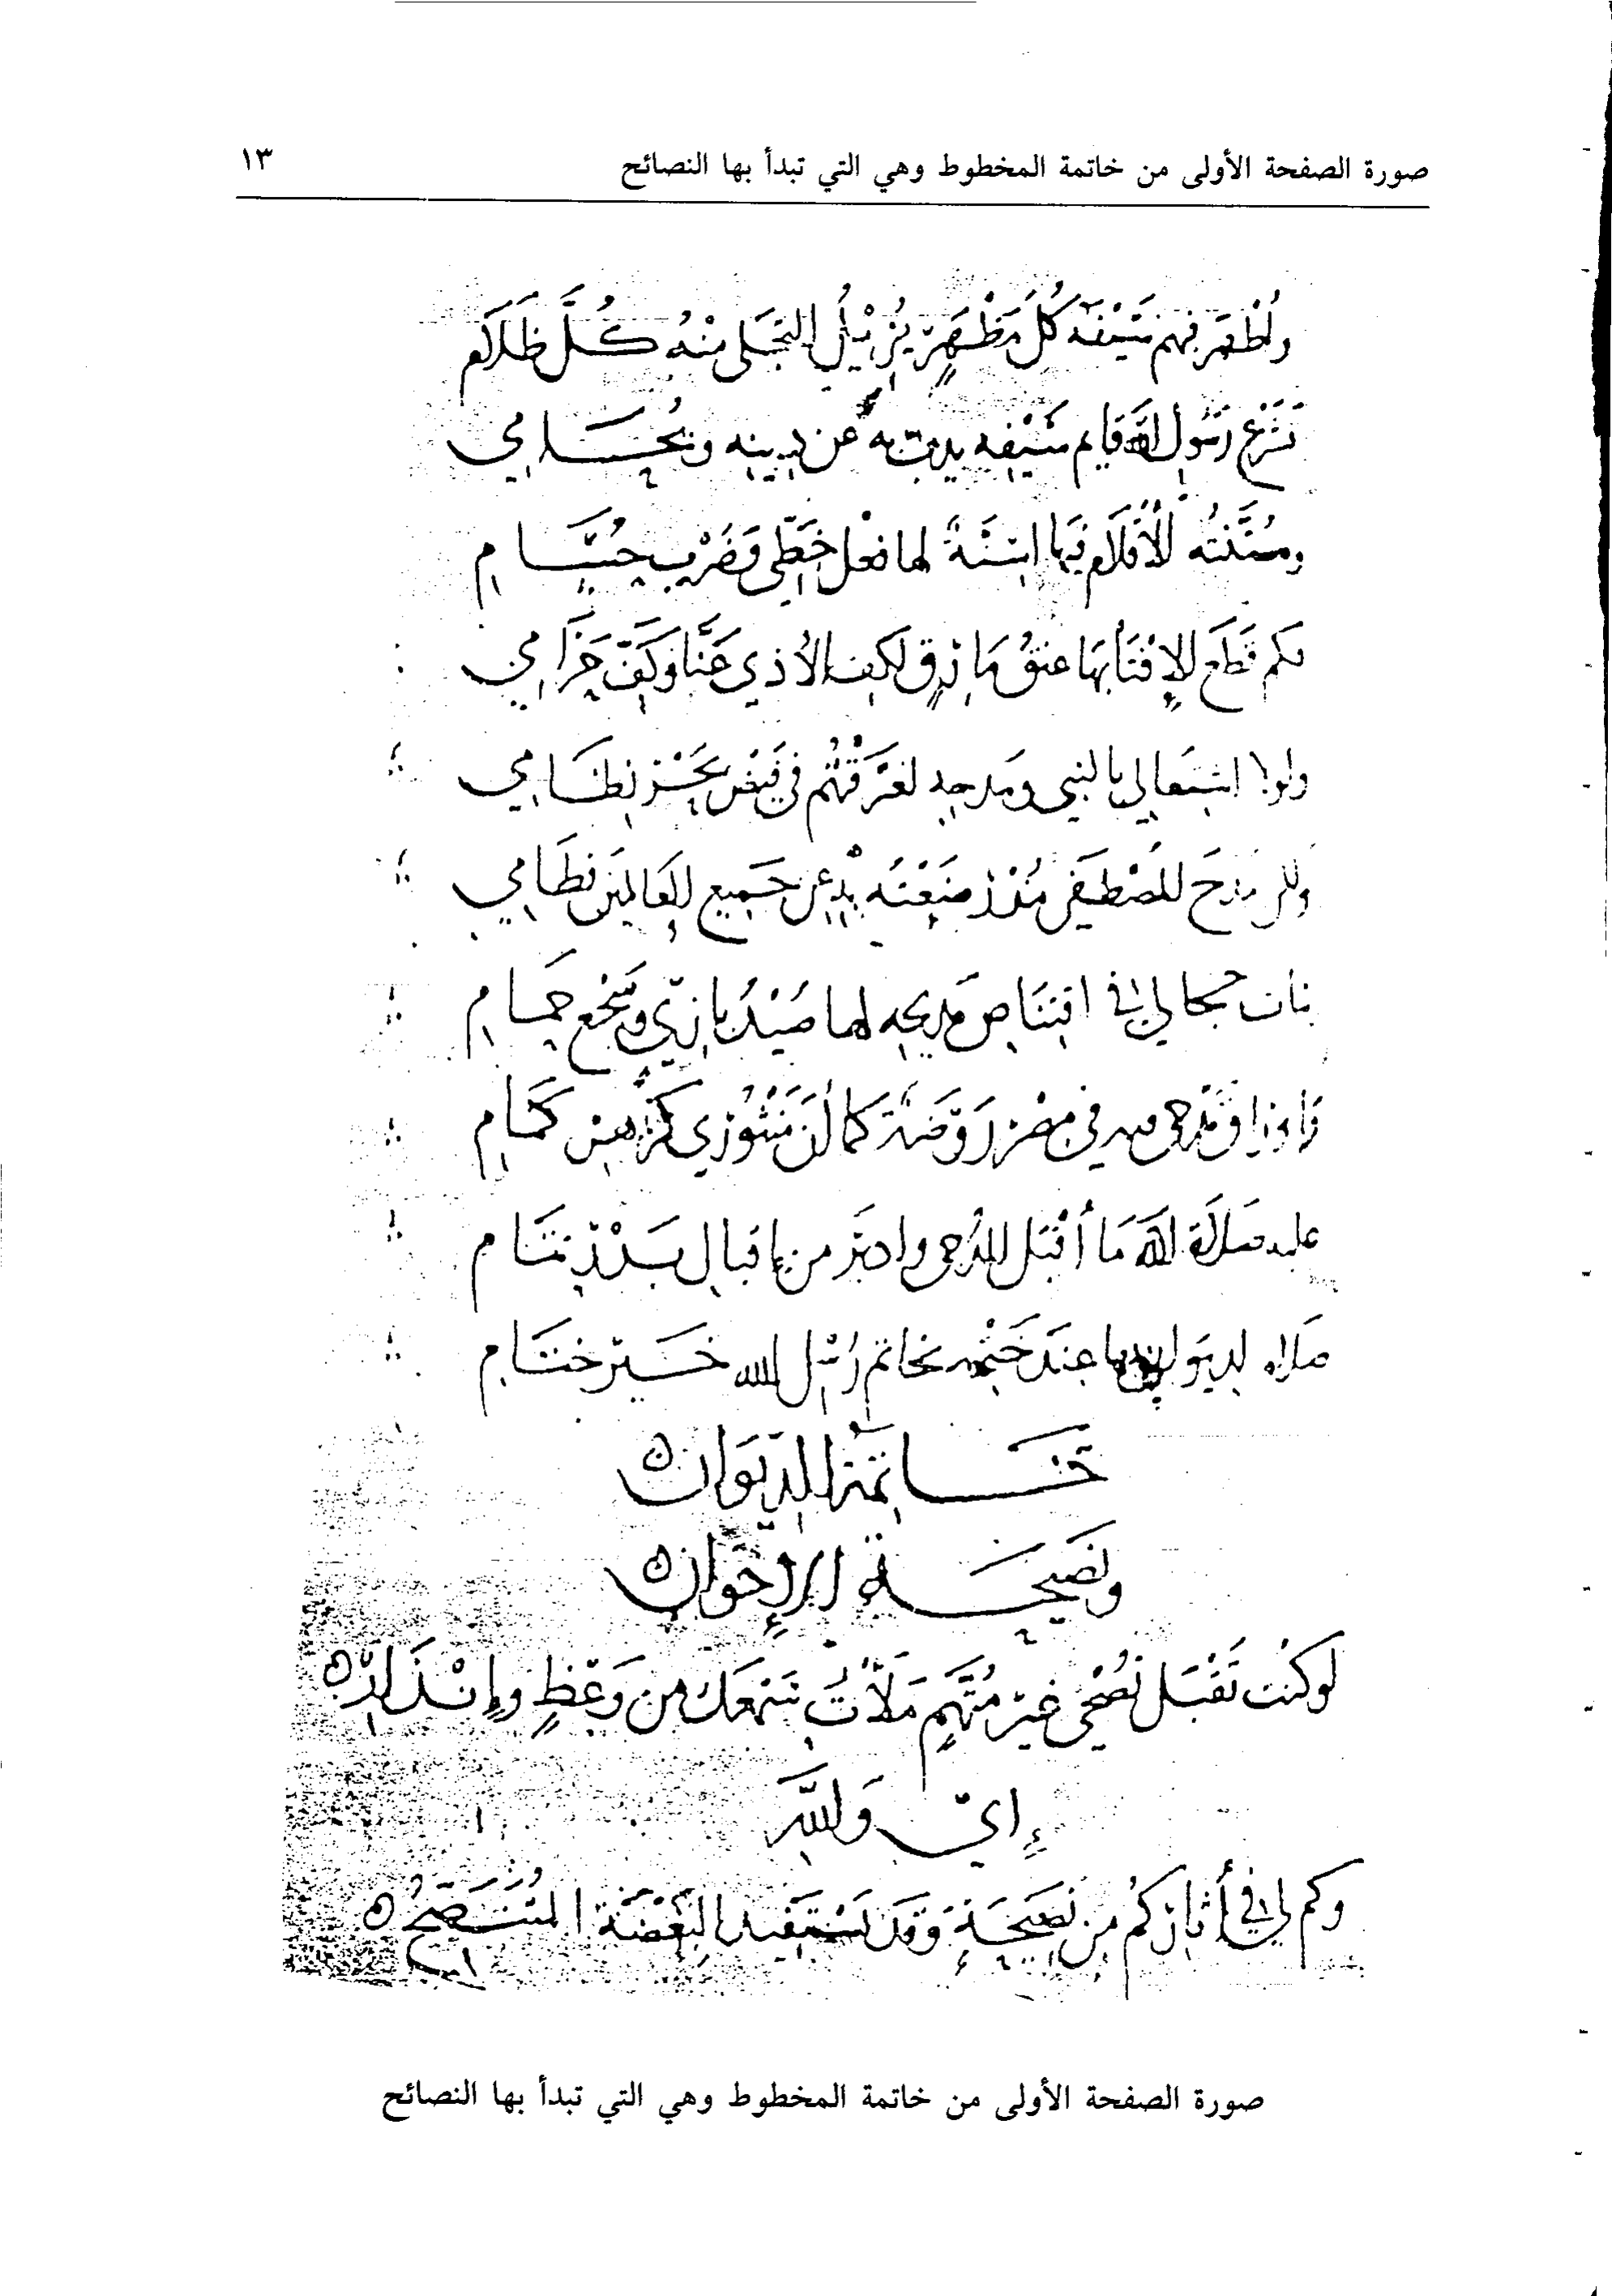 صورة الصفحة الأولى من خاتمة المخطوط وهي التي تبدأ بها النصائح
١٣
وأظهر فيهم سَيْفُه كُلَّ مَظْهَرٍ يُزِيْلُ التجلي مِنْهُ كُلَّ ظَلَام
بشرع رَسُول الله قايم سَيْفِه يذب به عن دينه ويُحَامي
الأقلام فيها اسِنَّةً لها فعل خَطِّي وَضَرْب حُسَام
فكم قَطَع الإفتَا بهَا عنقُ مَارق لكف الأذي عَنَّا وَكَفَّ حَرَامي
ولولا اشتغالي بالنبي ومدحه لغَرَّقْتُهُم في فَيْض بَحْر نِظَامي
ولي مدح للمُصْطَفَى مُذْ صَنَعْتُه عن جَميع العَالمين نظَامي
بنات لي في اقتِنَاص مَديحه لها صَيْدُ بازيّ وسَجْع حَمَام
في مصْر رَوْضَة كما أن مَنْثُوري كزَهْر كمَام
عليه صَلَاة الله مَا أقْبَل الدُجى وادبَر من إقبال بَدْر تَمَام
صلاة عِنْدَ خَتْمه بخاتم رُسْل الله خَيْر خِتَام
خَاتِمَة الدِّيوَان
ونَصيحَة الإخوَان
لو كنت تَقْبَل نُصْحي غَيْر مُتَّهَمٍ مَلَأْتُ سَمْعَك من وَعْظٍ وإِنْذَار
إي وَاللَّهِ
وكم لي في أثاركُم من نَصِيحَةٍ وَقَد يَسْتَفيد البِغْضَةَ المُتَنَصِّحُ
صورة الصفحة الأولى من خاتمة المخطوط وهي التي تبدأ بها النصائح